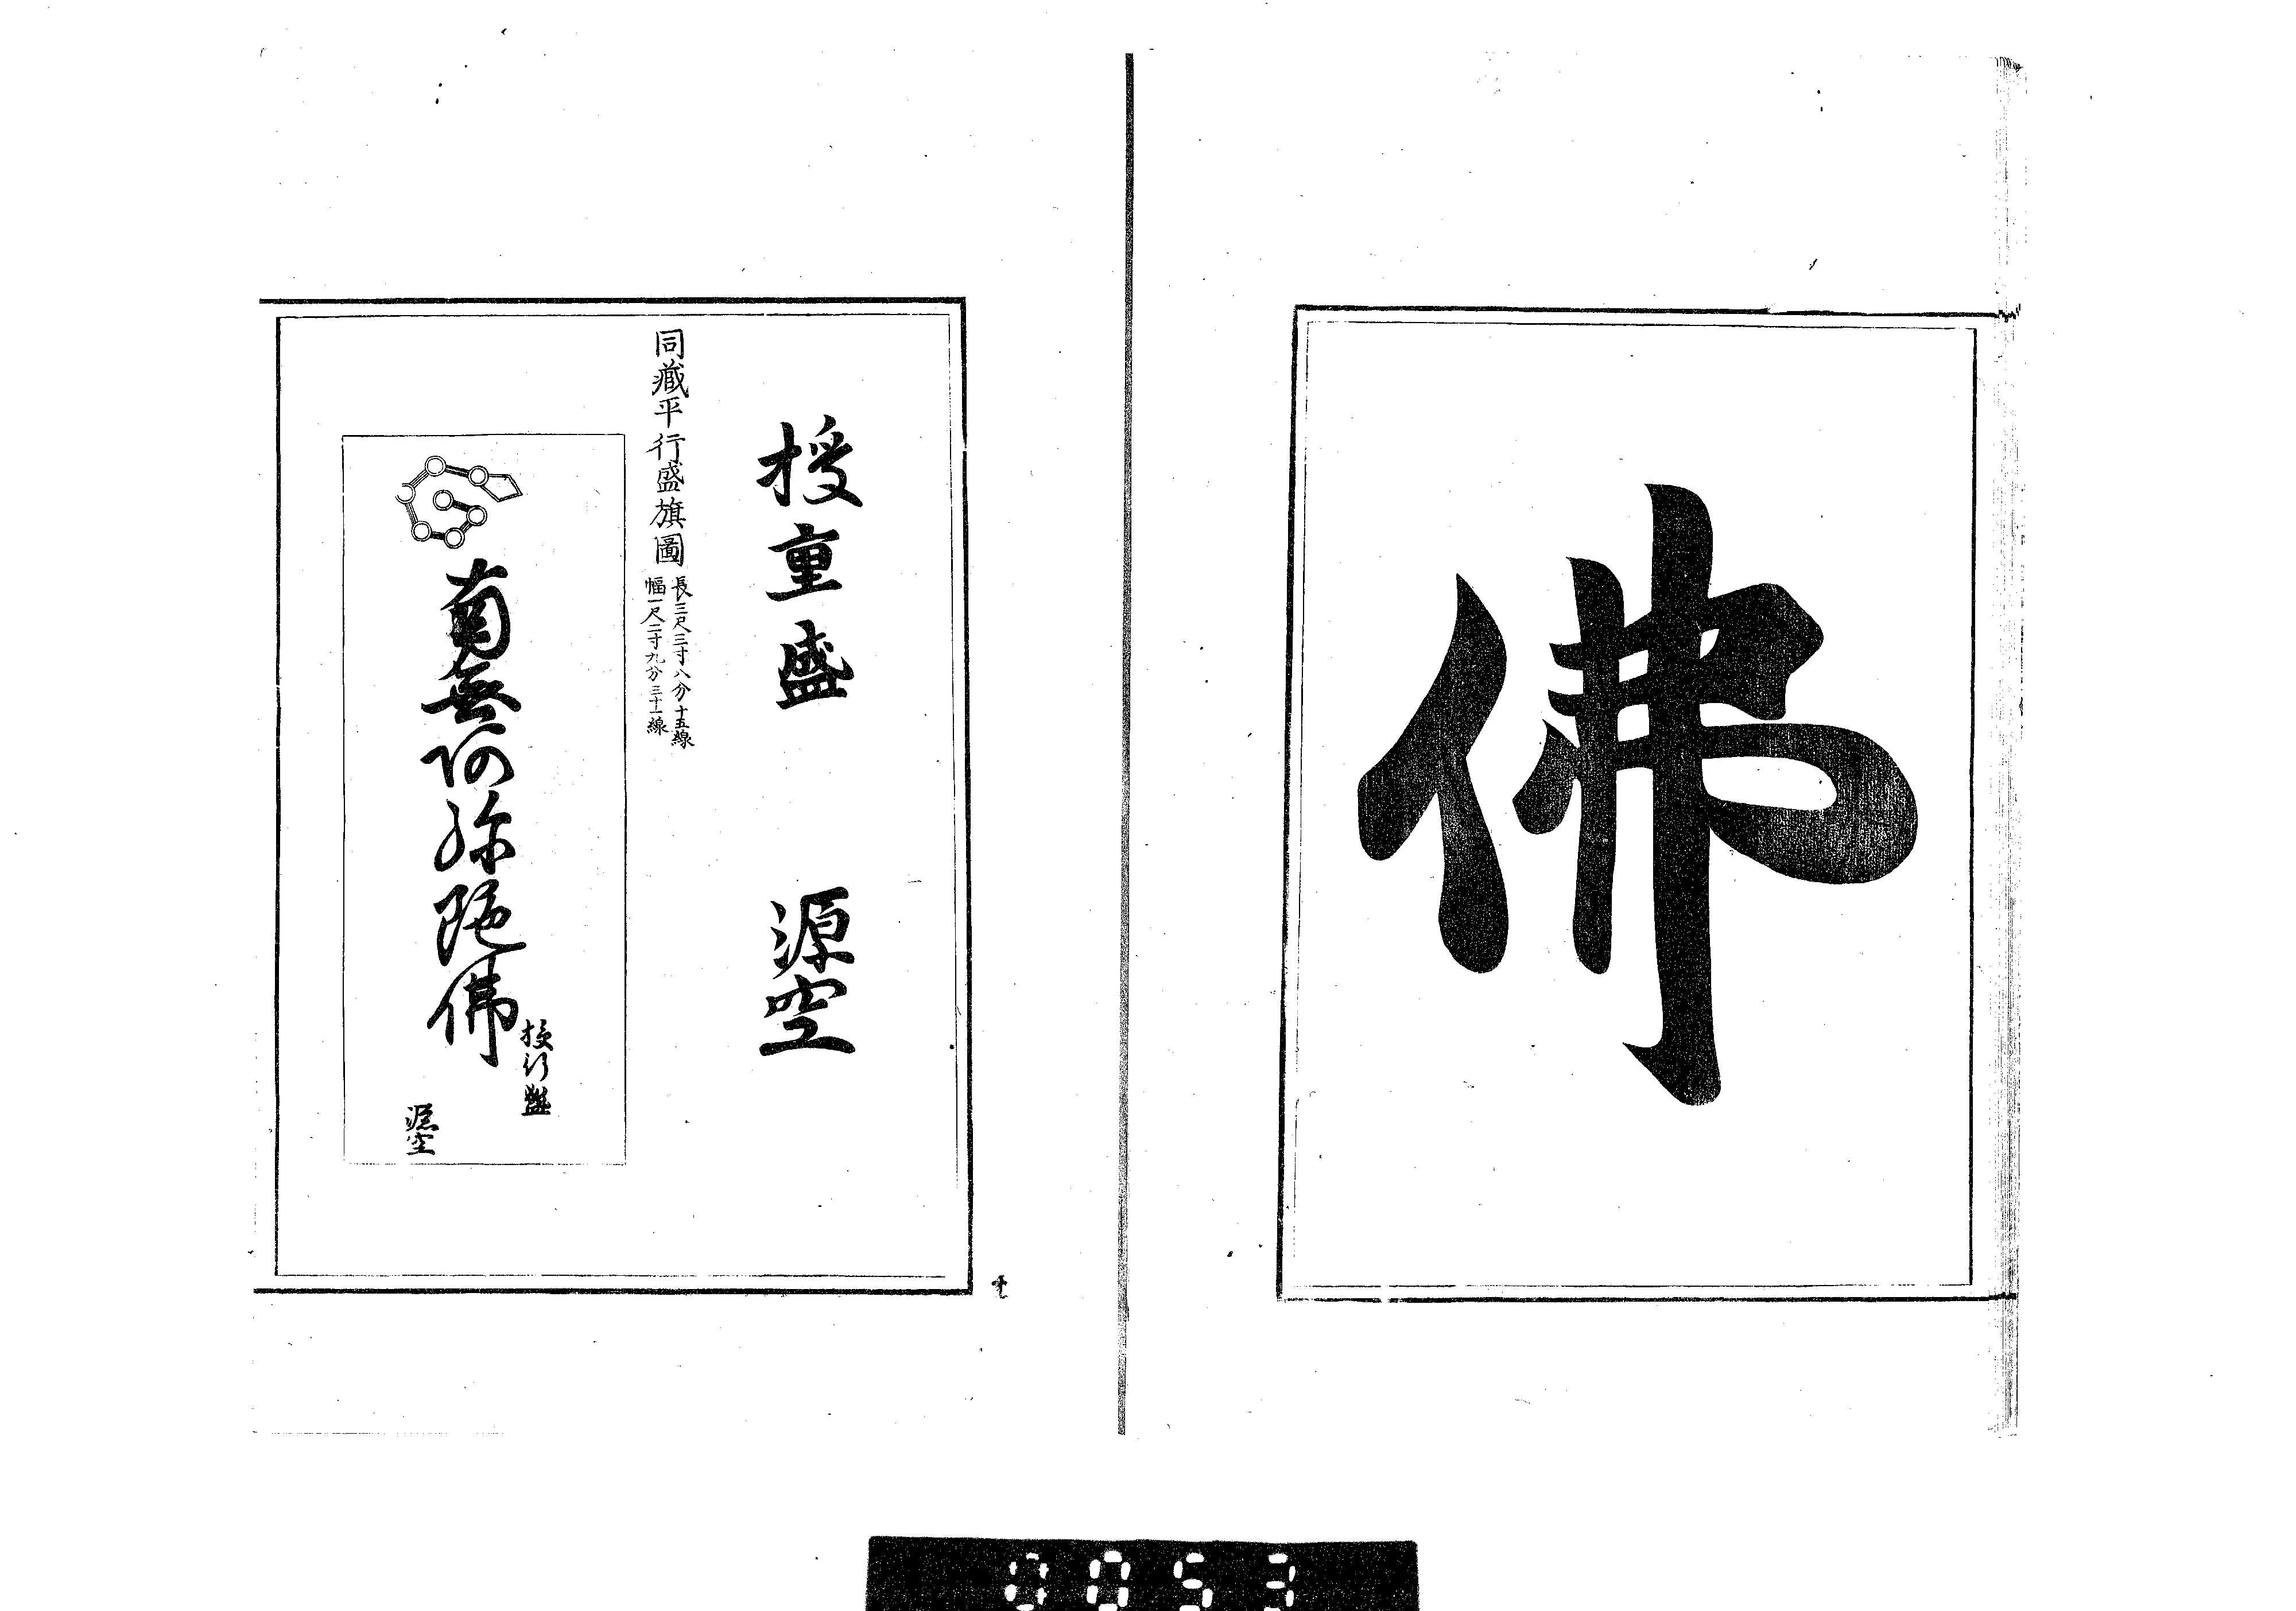 佛
授重盛　源空
同藏平行盛旗圖
長三尺三寸八分十五線
幅一尺二寸九分三十一線
南無阿弥陀佛
授行盛
源空
0053